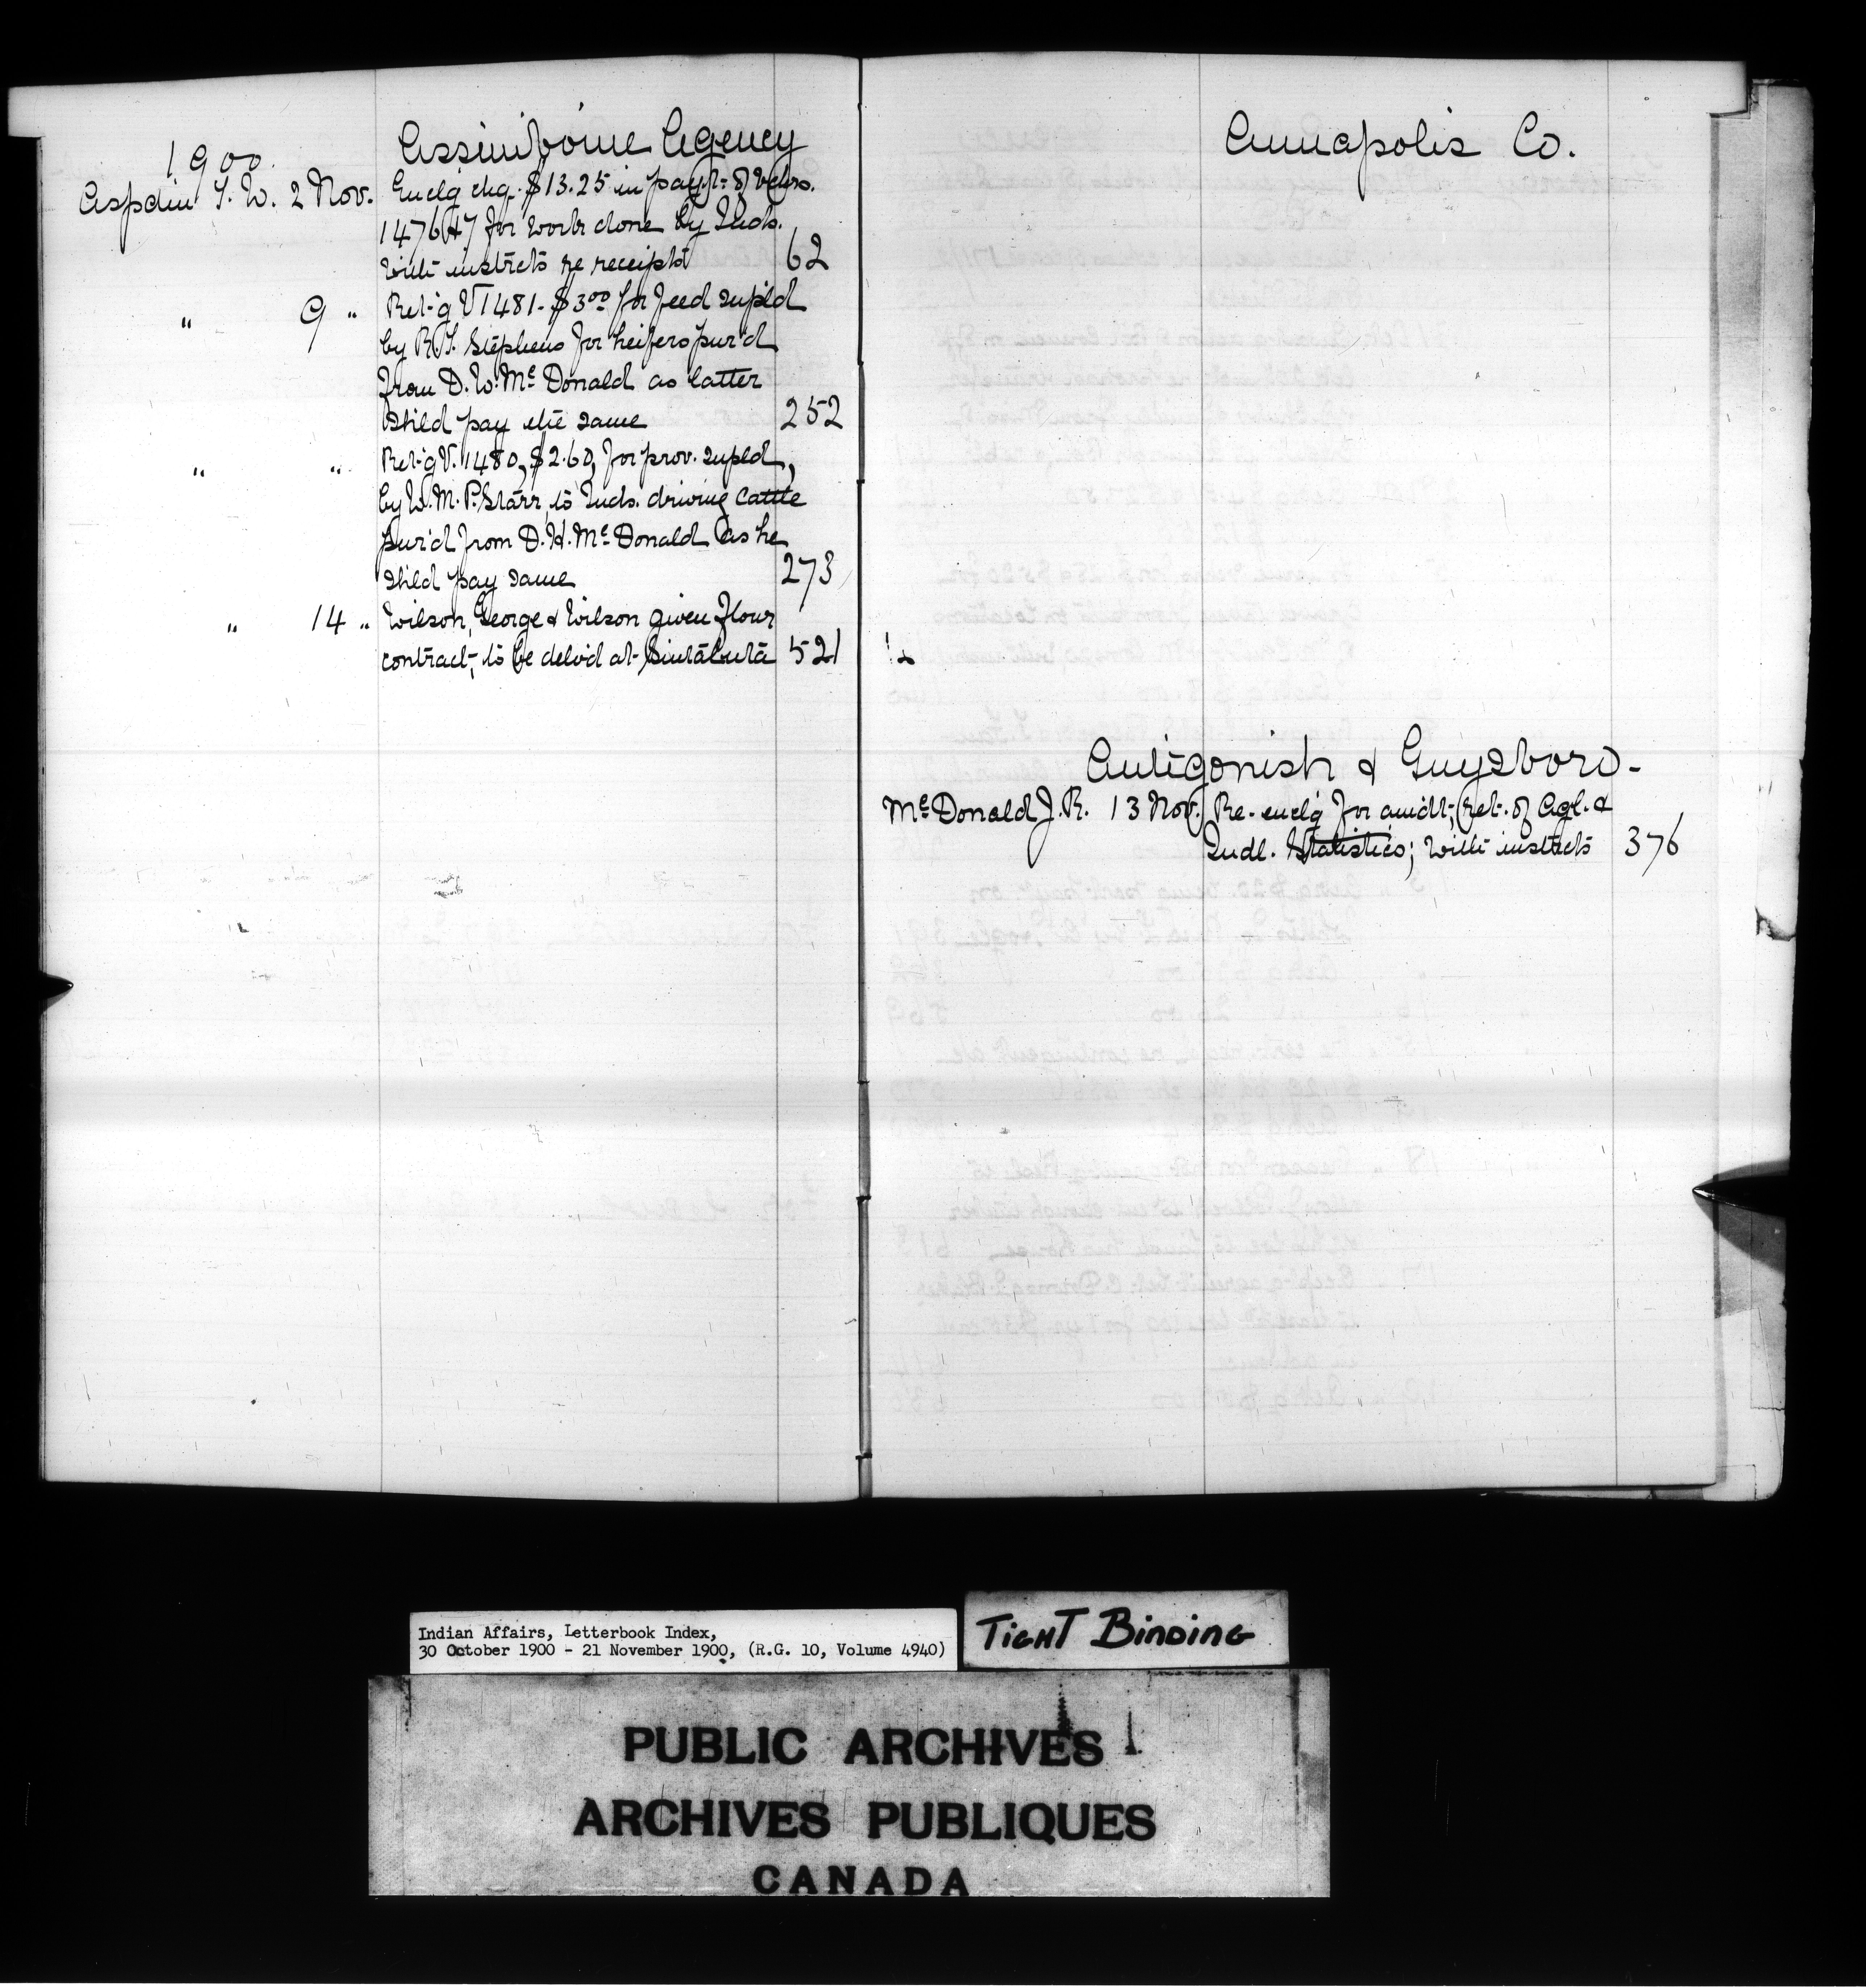 1900. Assiniboine Agency
Aspdin T. W. 2 Nov. Enclg chq. $13.25 in payt. of vchrs.
1476 & 7 for work done by Inds.
with instrcts re receipts 62
" 9 " Ret-g V 1481- $3.00 for feed supl'd
by R. S. Stephens for heifers pur'd
from D. W. McDonald as latter
shld pay the same 252
" " Ret-g V. 1480, $2.60, for prov. supld,
by W. M. P. Starr, to Inds. driving cattle
pur'd from D. H. McDonald as he
shld pay same 273
" 14 " Wilson, George & Wilson given flour
contract, to be delv'd at Sintaluta 521
Annapolis Co.
Antigonish & Guysboro-
McDonald J. R. 13 Nov. Re-enclg for amdt, ret. of Agl. &
Indl. Statistics; with instrcts 376
Indian Affairs, Letterbook Index,
30 October 1900 - 21 November 1900, (R.G. 10, Volume 4940)
TIGHT BINDING
PUBLIC ARCHIVES
ARCHIVES PUBLIQUES
CANADA